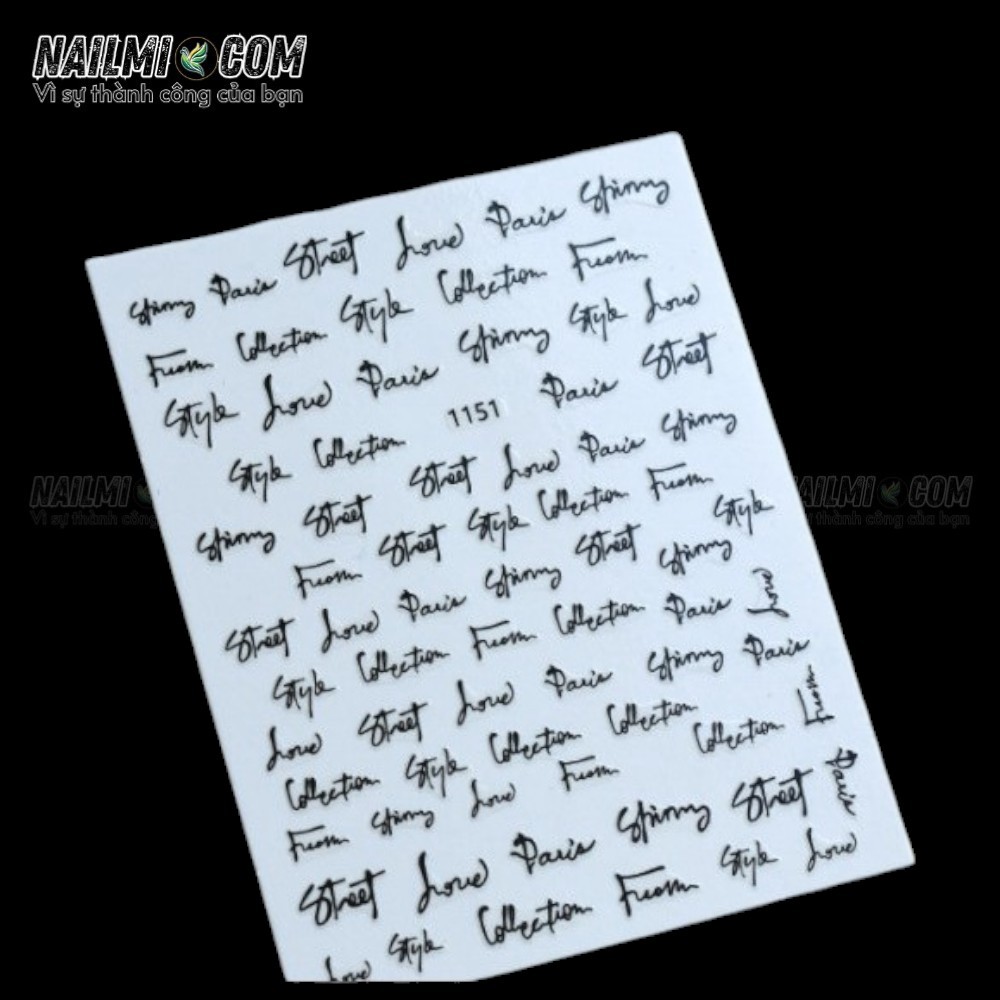 NAILMI COM
Vì sự thành công của bạn
Street Love Paris Spinny
Spinny Paris Style Collection From
From Collection Spinny Style Love
Style Love Paris Paris Street
Style Collection 1151 Paris Spinny
Spinny Street Street Love Collection From
From Street Style Street Style
Street Love Paris Spinny Spinny
Style Collection From Collection Paris Love
Love Street Love Paris Spinny Paris
Collection Style Collection Collection Collection From
From Spinny Love From
Street Love Paris Spinny Street Paris
Love Style Collection From Style Love
NAILMI
Vì sự thành công
AILMI COM
sự thành công của bạn